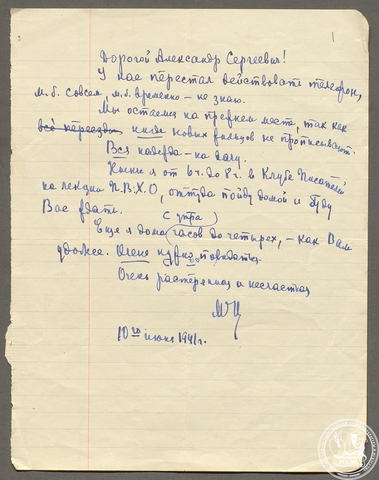 1
Дорогой Александр Сергеевич!
У нас перестал действовать телефон,
м.б. совсем, м.б. временно – не знаю.
Мы остаемся на прежнем месте, так как
всё переезды нигде новых жильцов не прописывают.
Вся надежда – на Вашу.
Нынче я от 6 ч. до 8 ч. в Клубе Писателей
на лекции П.В.Х.О, оттуда пойду домой и буду
Вас ждать.
(с утра)
Еще я дома часов до четырех, – как Вам
удобнее. Очень нужно повидаться.
Очень растерянная и несчастная
МЦ
10го июня 1941 г.